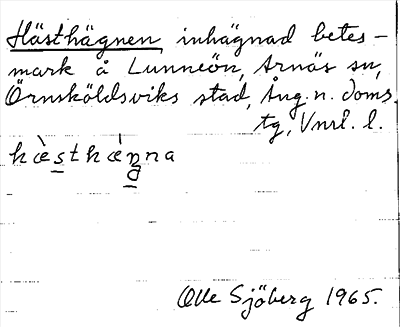 Hästhägnen inhägnad betes-
mark å Lunneön, Arnäs sn,
Örnsköldsviks stad, Ång. n. doms.
tg, Vnrl. l.
hæ̀s̲thæ̀ŋna
Olle Sjöberg 1965.